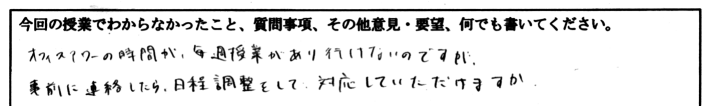 今回の授業でわからなかったこと、質問事項、その他意見・要望、何でも書いてください。
オフィスアワーの時間が、毎週授業があり行けないのですが、
事前に連絡したら、日程調整をして、対応していただけますか.